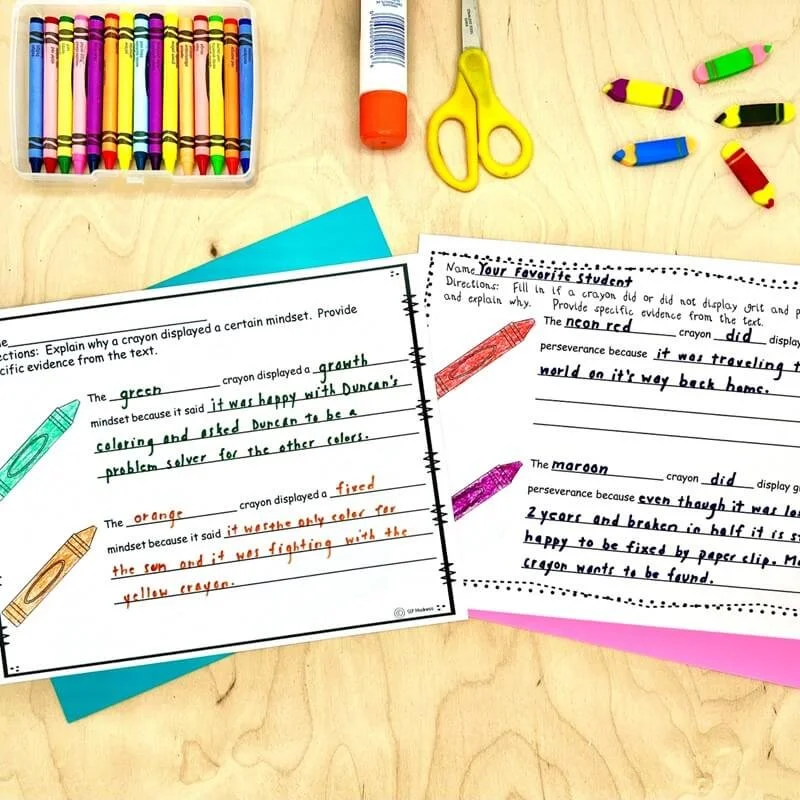 Explain why a crayon displayed a certain mindset. Provide
evidence from the text.
The green crayon displayed a growth
mindset because it said it was happy with Duncan's
coloring and asked Duncan to be a
problem solver for the other colors.
The orange crayon displayed a fixed
mindset because it said it was the only color for
the sun and it was fighting with the
yellow crayon.
Name Your Favorite Student
Directions: Fill in if a crayon did or did not display grit and
and explain why. Provide specific evidence from the text.
The neon red crayon did display
perseverance because it was traveling
world on it's way back home.
The maroon crayon did display
perseverance because even though it was
2 years and broken in half it is
happy to be fixed by paper clip.
crayon wants to be found.